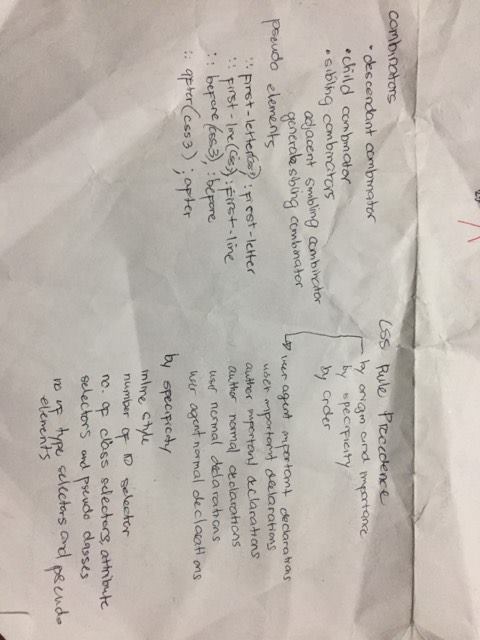 combinators
• descendant combinator
• child combinator
• sibling combinators
adjacent smibling combinator
generale sibing combinator
pseudo elements
:: first-letter(css3) : first-letter
:: first-line(css3) : first-line
:: before(css3), :before
:: after(css3) ; after
CSS Rule Precedence
by origin and importance
by specificity
by order
user agent important declarations
user important declarations
author important declarations
author normal declarations
user normal declarations
user agent normal declarations
by specificity
inline style
number of ID selector
no. of class selectors, attribute
selectors and pseudo classes
no of type selectors and pseudo
elements